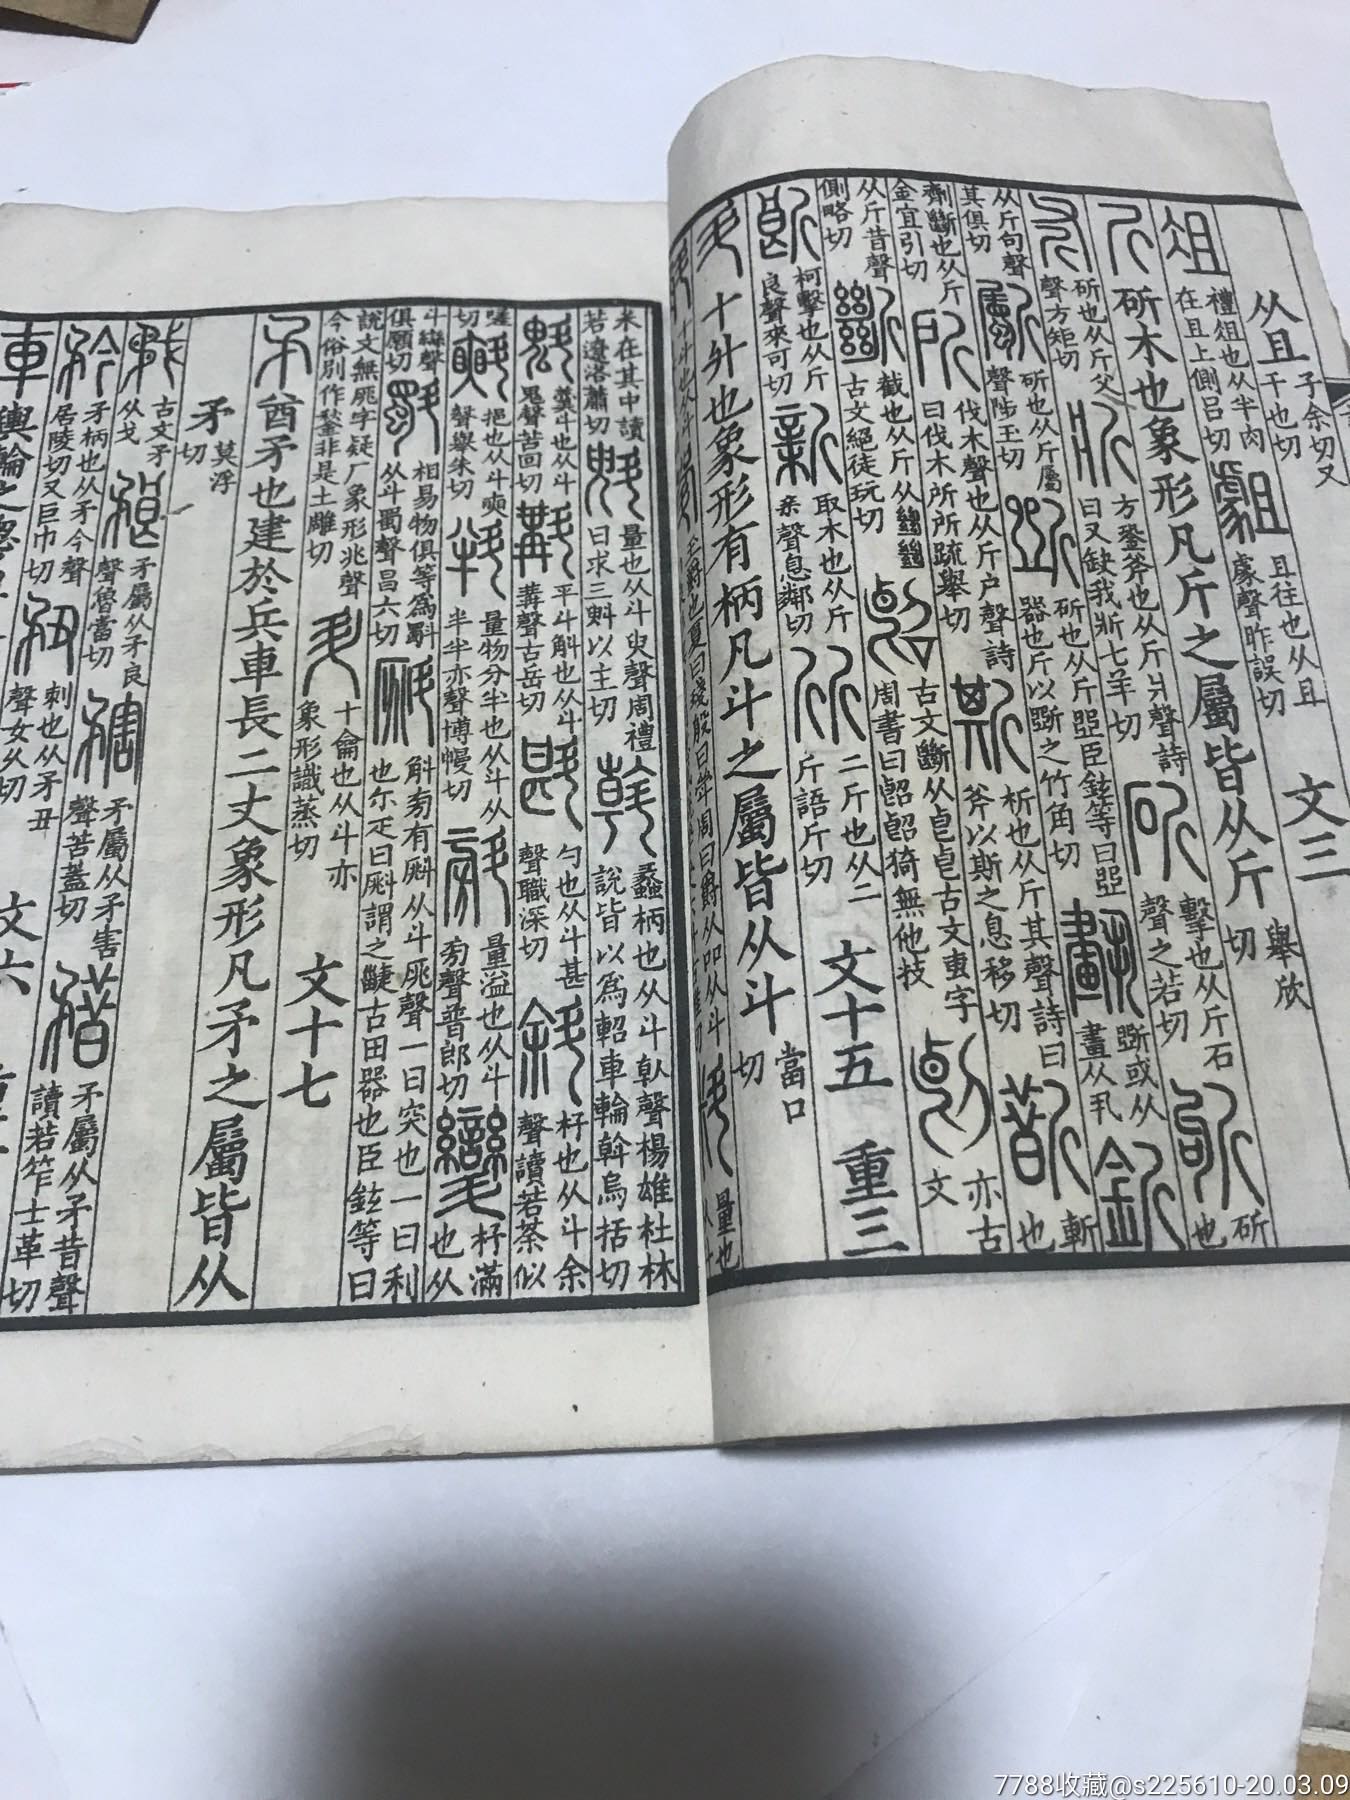 从且 子余切又千也切 文三
俎 禮俎也从半肉在且上側呂切 𧆓 且往也从且䖒聲昨誤切
斤 斫木也象形凡斤之屬皆从斤 舉欣切
斧 斫也从斤父聲方矩切 斨 方銎斧也从斤爿聲詩曰又缺我斨七羊切 斫 擊也从斤石聲之若切 斪 斫也
从斤句聲其俱切 斸 斫也从斤屬聲陟玉切 斲 斫也从斤㔶臣鉉等曰㔶器也斤以斲之竹角切 斲或从畫从丮 釿
劑斷也从斤金宜引切 所 伐木聲也从斤户聲詩曰伐木所所疏舉切 斯 析也从斤其聲詩曰斧以斯之息移切 斮 斬也
从斤昔聲側略切 斷 截也从斤从㡭㡭古文絕徒玩切 古文斷从𠧢𠧢古文叀字周書曰䛒䛒猗無他技 亦古文
柯擊也从斤良聲來可切 新 取木也从斤亲聲息鄰切 斦 二斤也从二斤語斤切 文十五 重三
斗 十升也象形有柄凡斗之屬皆从斗 當口切
斛 十斗也从斗 斝 玉爵也夏曰琖殷曰斝周曰爵从吅从斗 料 量也
米在其中讀若遼洛蕭切 斞 量也从斗臾聲周禮曰求三斞以主切 斡 蠡柄也从斗倝聲楊雄杜林說皆以爲軺車輪斡烏括切
魁 羹斗也从斗鬼聲苦回切 斠 平斗斛也从斗冓聲古岳切 斟 勺也从斗甚聲職深切 斜 杼也从斗余聲讀若荼似
嗟切 㪺 挹也从斗㪺聲舉朱切 㪵 量物分半也从斗从半半亦聲博幔切 量溢也从斗㫄聲普郎切 杼滿也从
斗䜌聲俱願切 斣 相易物俱等爲斣从斗蜀聲昌六切 斛㫄有𣂁从斗𠩓聲一曰突也一曰利也尒疋曰𣂁謂之疀古田器也臣鉉等曰
說文無𠩓字疑厂象形兆聲今俗別作鍫非是土雕切 升 十龠也从斗亦象形識蒸切 文十七
矛 酋矛也建於兵車長二丈象形凡矛之屬皆从
矛 莫浮切
古文矛从戈 矛屬从矛良聲魯當切 矛屬从矛害聲苦蓋切 矠 矛屬从矛昔聲讀若笮士革切
矜 矛柄也从矛今聲居陵切又巨巾切 刺也从矛丑聲女久切 文六
車 輿輪之